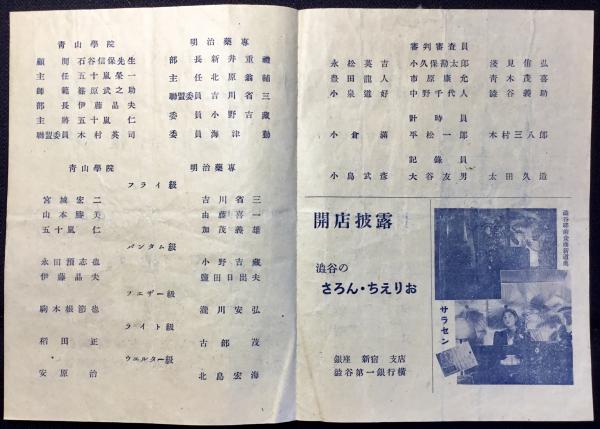 青山學院
顧問 石谷信保先生
主任 五十嵐榮一
師範 篠原武之助
部長 伊藤晶夫
主將 五十嵐仁
聯盟委員 木村英司
明治藥專
部長 新井重禮
主任 北原翁輔
聯盟委員 吉川省三
委員 小野吉藏
委員 海津勤
青山學院 明治藥專
フライ級
宮城宏二 吉川省三
山本勝美 由藤喜一
五十嵐仁 加茂義雄
バンタム級
永田預志也 小野吉藏
伊藤晶夫 鹽田日出夫
フエザー級
駒木根節也 瀧川安弘
ライト級
稻田正 古郡茂
ウエルター級
安原治 北島宏海
審判審査員
永松英吉 小久保勘太郎 淺見侑弘
豊田龍人 市原康允 青木茂喜
小泉道好 中野千代人 澁谷義助
計時員
小倉滿 平松一郎 木村三八郎
記錄員
小島武彦 大谷友男 太田久造
開店披露
澁谷の
さろん・ちえりお
銀座 新宿 支店
澁谷第一銀行横
サラセン